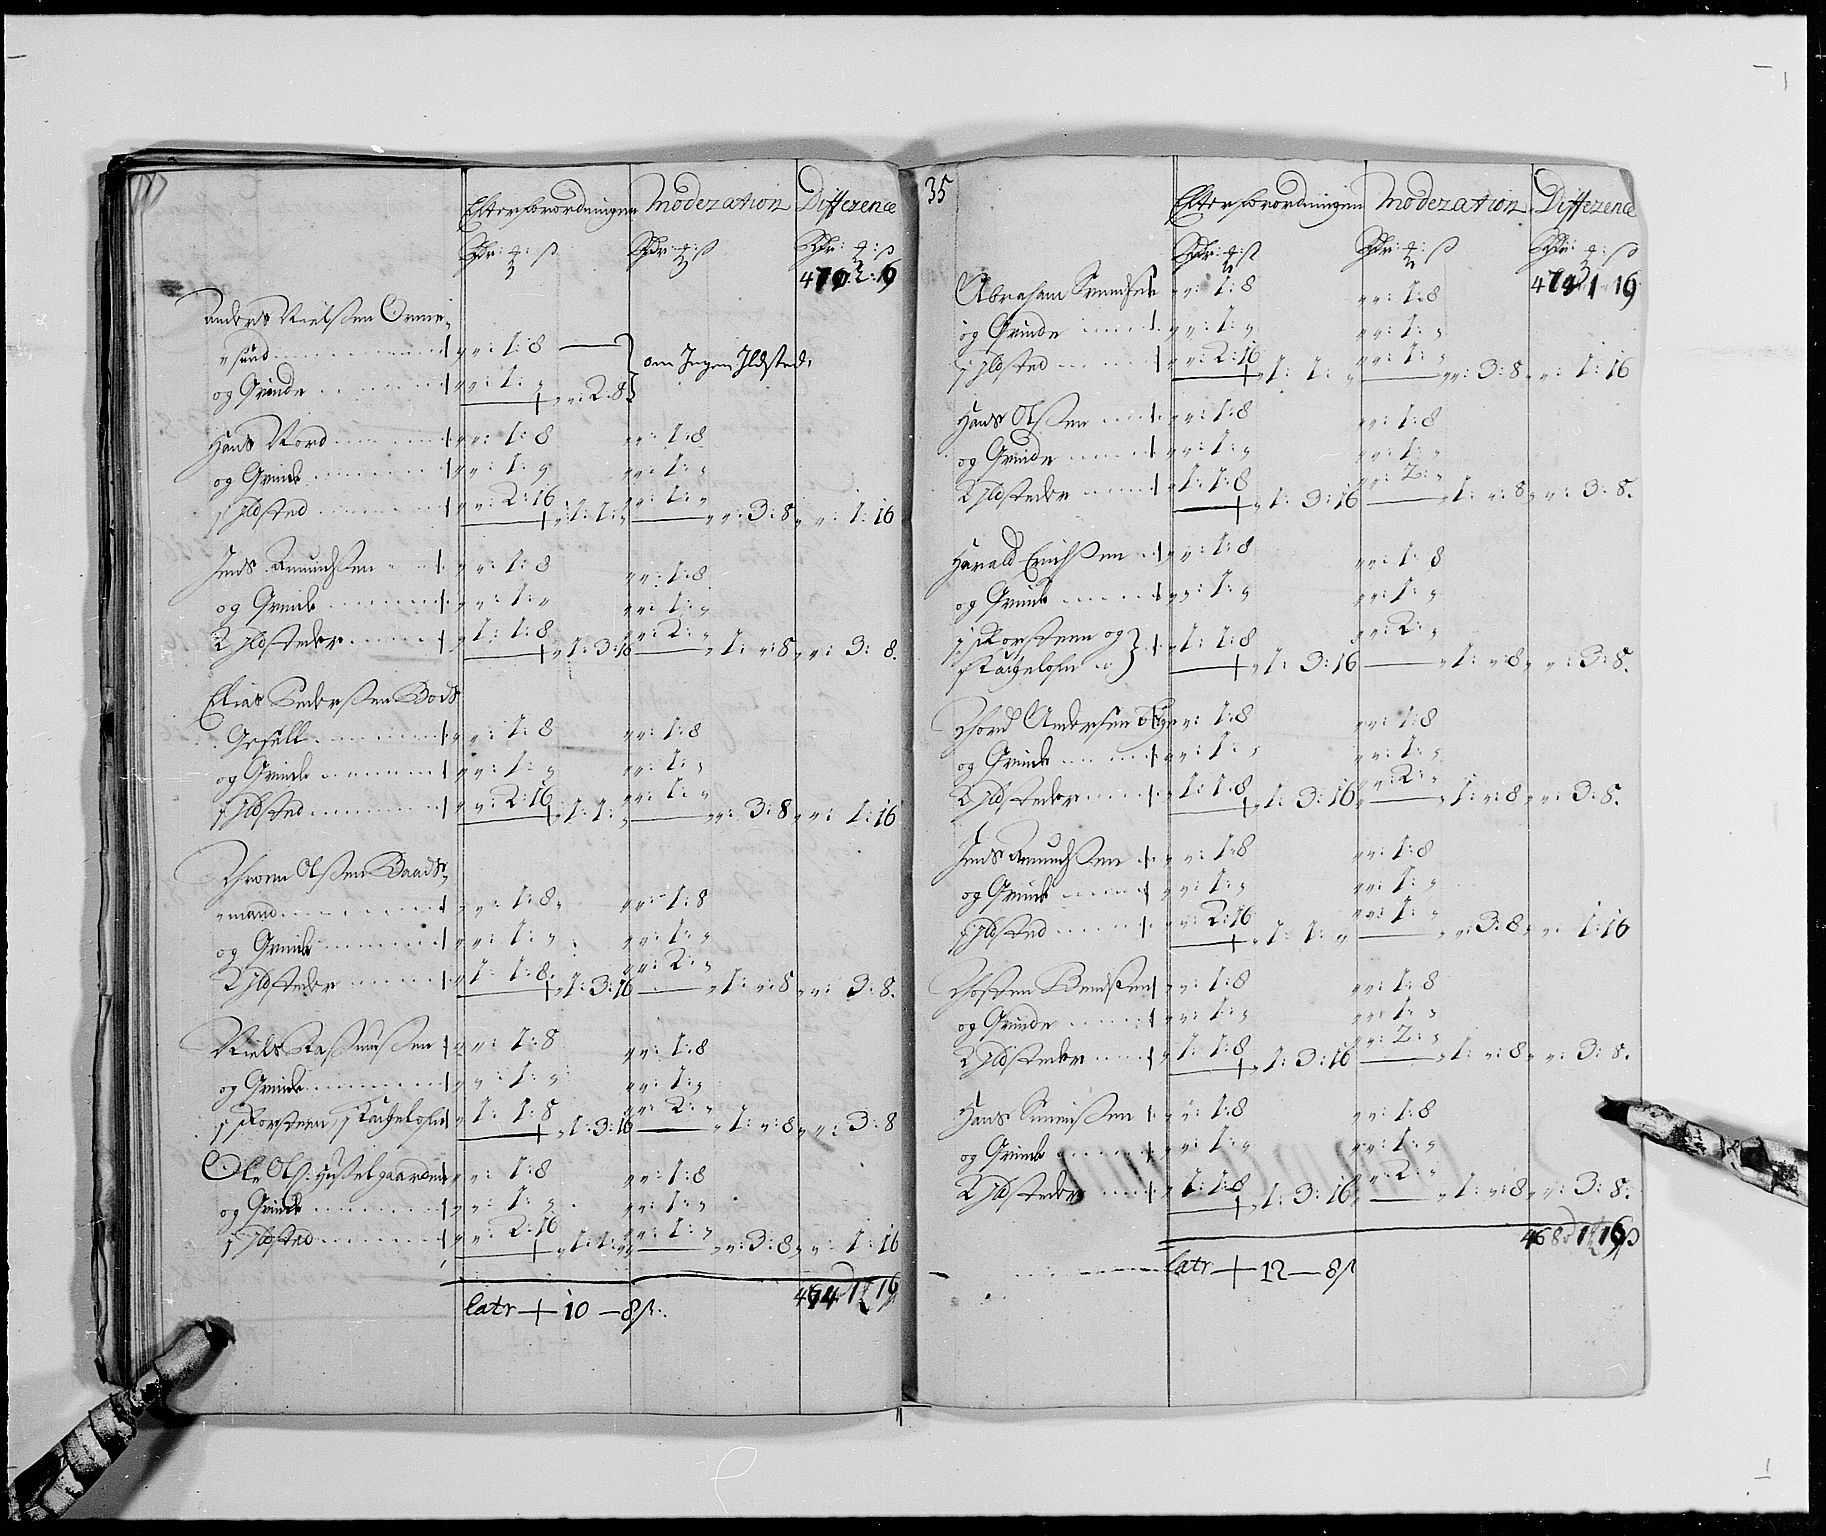 Efterforordningen Moderation Difference
Rdr: : ß Rdr: : ß Rdr: : ß
Anders Nielsen Orme,,
,,sund ,, ,,: 1: 8
om Ingen Ildsted:
og Qvinde ,, ,,: 1: ,, ,, ,,: 2: 8
Hans Nord ,, ,,: 1: 8 ,, ,,: 1: 8
og Qvinde ,, ,,: 1: ,, ,, ,,: 1: ,,
1 Ildsted ,, ,,: 2: 16 ,, 1: 1: ,, ,, ,,: 1: ,, ,, ,,: 3: 8 ,, ,,: 1: 16
Jens Amundsen ,, ,,: 1: 8 ,, ,,: 1: 8
og Qvinde ,, ,,: 1: ,, ,, ,,: 1: ,,
2 Ildsteder ,, 1: 1: 8 ,, 1: 3: 16 ,, ,,: 2: ,, ,, 1: ,,: 8 ,, ,,: 3: 8.
Elias Pedersen Bods
Gesell ,, ,,: 1: 8 ,, ,,: 1: 8
og Qvinde ,, ,,: 1: ,, ,, ,,: 1: ,,
1 Ildsted ,, ,,: 2: 16 ,, 1: 1: ,, ,, ,,: 1: ,, ,, ,,: 3: 8 ,, ,,: 1: 16
Olsen Baads,,
,,mand ,, ,,: 1: 8 ,, ,,: 1: 8
og Qvinde ,, ,,: 1: ,, ,, ,,: 1: ,,
2 Ildsteder ,, 1: 1: 8. ,, 1: 3: 16 ,, ,,: 2: ,, ,, 1: ,,: 8 ,, ,,: 3: 8.
Niels Rasmusen ,, ,,: 1: 8 ,, ,,: 1: 8
og Qvinde ,, ,,: 1: ,, ,, ,,: 1: ,,
1 Korsteen, 1 Kachelofn ,, 1: 1: 8 ,, 1: 3: 16 ,, ,,: 2: ,, ,, 1: ,,: 8 ,, ,,: 3: 8
Ole Ols: ,, ,,: 1: 8 ,, ,,: 1: 8
og Qvinde ,, ,,: 1: ,, ,, ,,: 1: ,,
1 Ildsted ,, ,,: 2: 16 ,, 1: 1: ,, ,, ,,: 1: ,, ,, ,,: 3: 8 ,, ,,: 1: 16
Latr + 10 — 8ß.
35
Efterforordningen Moderation Difference
Rdr: : ß Rdr: : ß Rdr: : ß
Abraham Svendsen ,, ,,: 1: 8 ,, ,,: 1: 8
og Qvinde ,, ,,: 1: ,, ,, ,,: 1: ,,
1 Ildsted ,, ,,: 2: 16 ,, 1: 1: ,, ,, ,,: 1: ,, ,, ,,: 3: 8 ,, ,,: 1: 16
Hans Olsen ,, ,,: 1: 8 ,, ,,: 1: 8
og Qvinde ,, ,,: 1: ,, ,, ,,: 1: ,,
2 Ildsteder ,, 1: 1: 8 ,, 1: 3: 16 ,, ,,: 2: ,, ,, 1: ,,: 8 ,, ,,: 3: 8.
Harald Erichsen ,, ,,: 1: 8 ,, ,,: 1: 8
og Qvinde ,, ,,: 1: ,, ,, ,,: 1: ,,
1 Korsteen og ,, 1: 1: 8 ,, ,,: 2: ,,
1 Kachelofn ,, 1: 3: 16 ,, 1: ,,: 8 ,, ,,: 3: 8.
Andersen ,, ,,: 1: 8 ,, ,,: 1: 8
og Qvinde ,, ,,: 1: ,, ,, ,,: 1: ,,
2 Ildsteder ,, 1: 1: 8 ,, 1: 3: 16 ,, ,,: 2: ,, ,, 1: ,,: 8 ,, ,,: 3: 8.
Jens Amundsen ,, ,,: 1: 8 ,, ,,: 1: 8
og Qvinde ,, ,,: 1: ,, ,, ,,: 1: ,,
1 Ildsted ,, ,,: 2: 16 ,, 1: 1: ,, ,, ,,: 1: ,, ,, ,,: 3: 8 ,, ,,: 1: 16
,, ,,: 1: 8 ,, ,,: 1: 8
og Qvinde ,, ,,: 1: ,, ,, ,,: 1: ,,
2 Ildsteder ,, 1: 1: 8 ,, 1: 3: 16 ,, ,,: 2: ,, ,, 1: ,,: 8 ,, ,,: 3: 8.
Hans Simensen ,, ,,: 1: 8 ,, ,,: 1: 8
og Qvinde ,, ,,: 1: ,, ,, ,,: 1: ,,
2 Ildsteder ,, 1: 1: 8 ,, 1: 3: 16 ,, ,,: 2: ,, ,, 1: ,,: 8 ,, ,,: 3: 8.
Latr + 12 — 8ß